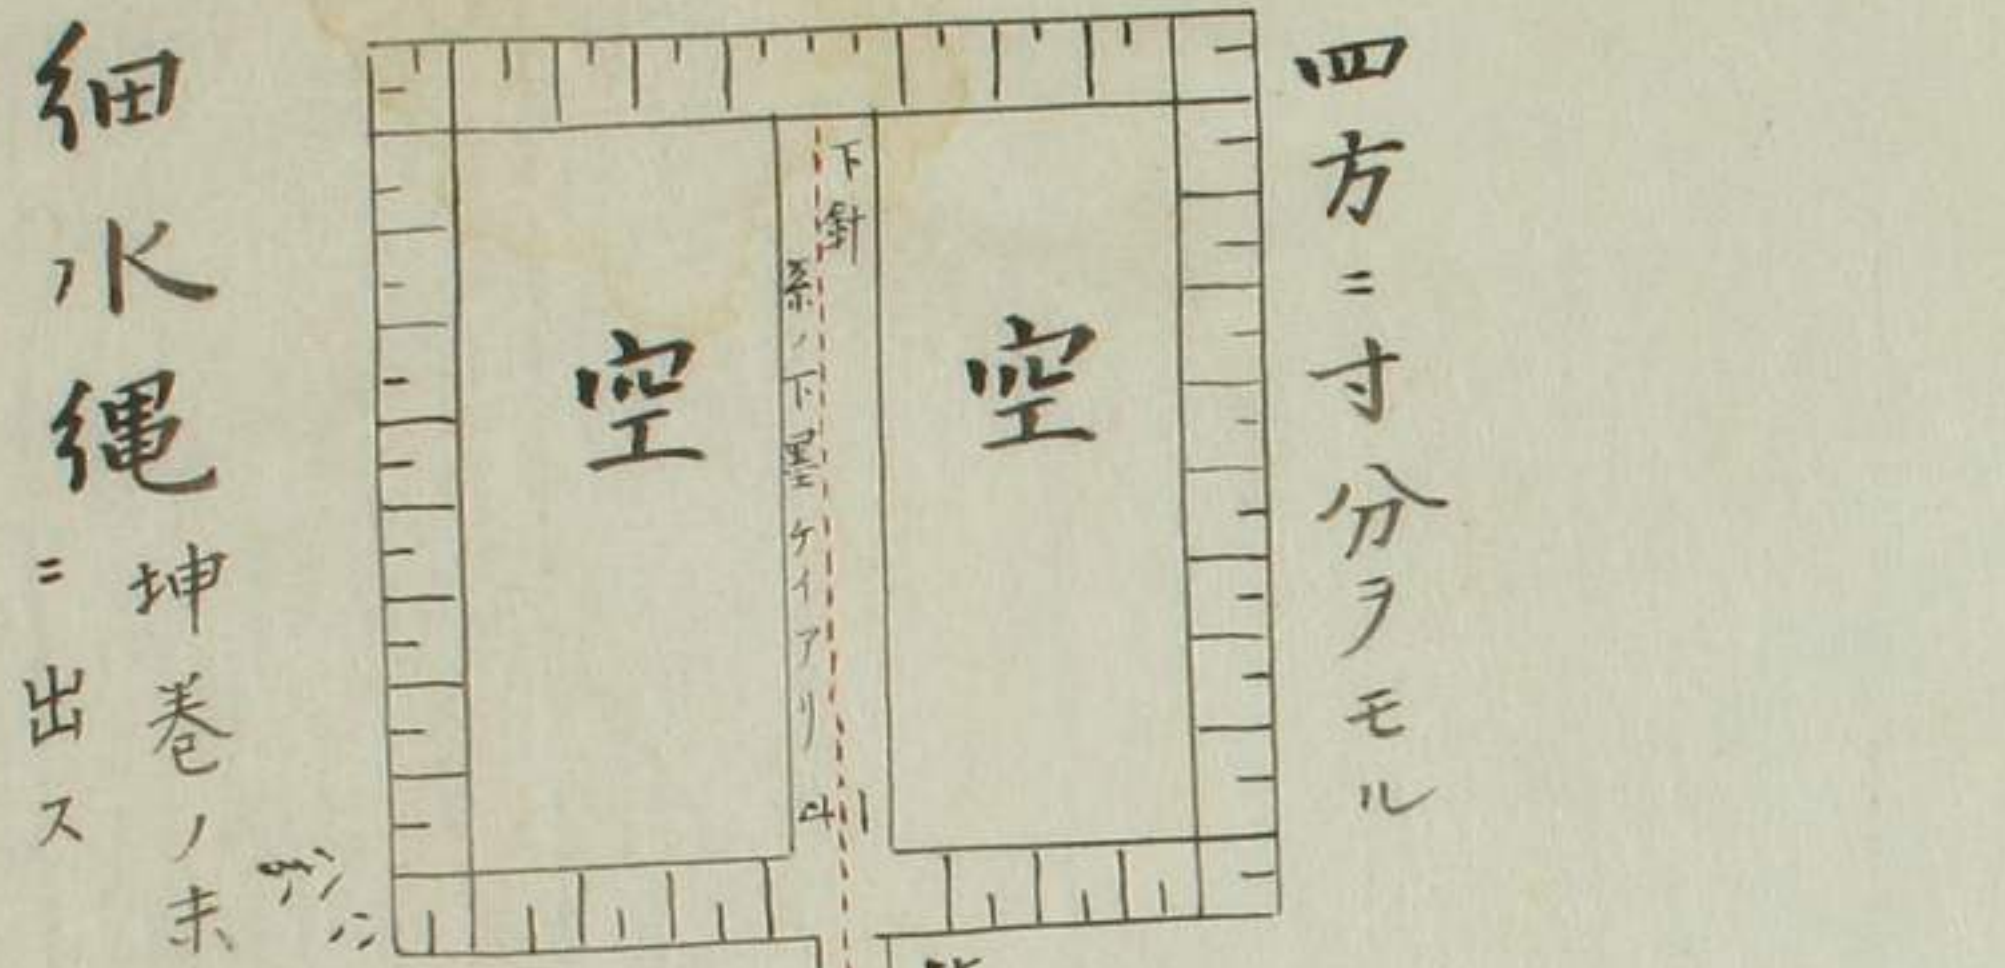 四方ニ寸分ヲモル
空
下針
糸ノ下墨ケイアリ
空
細水縄
坤巻ノ末
ニ出ス